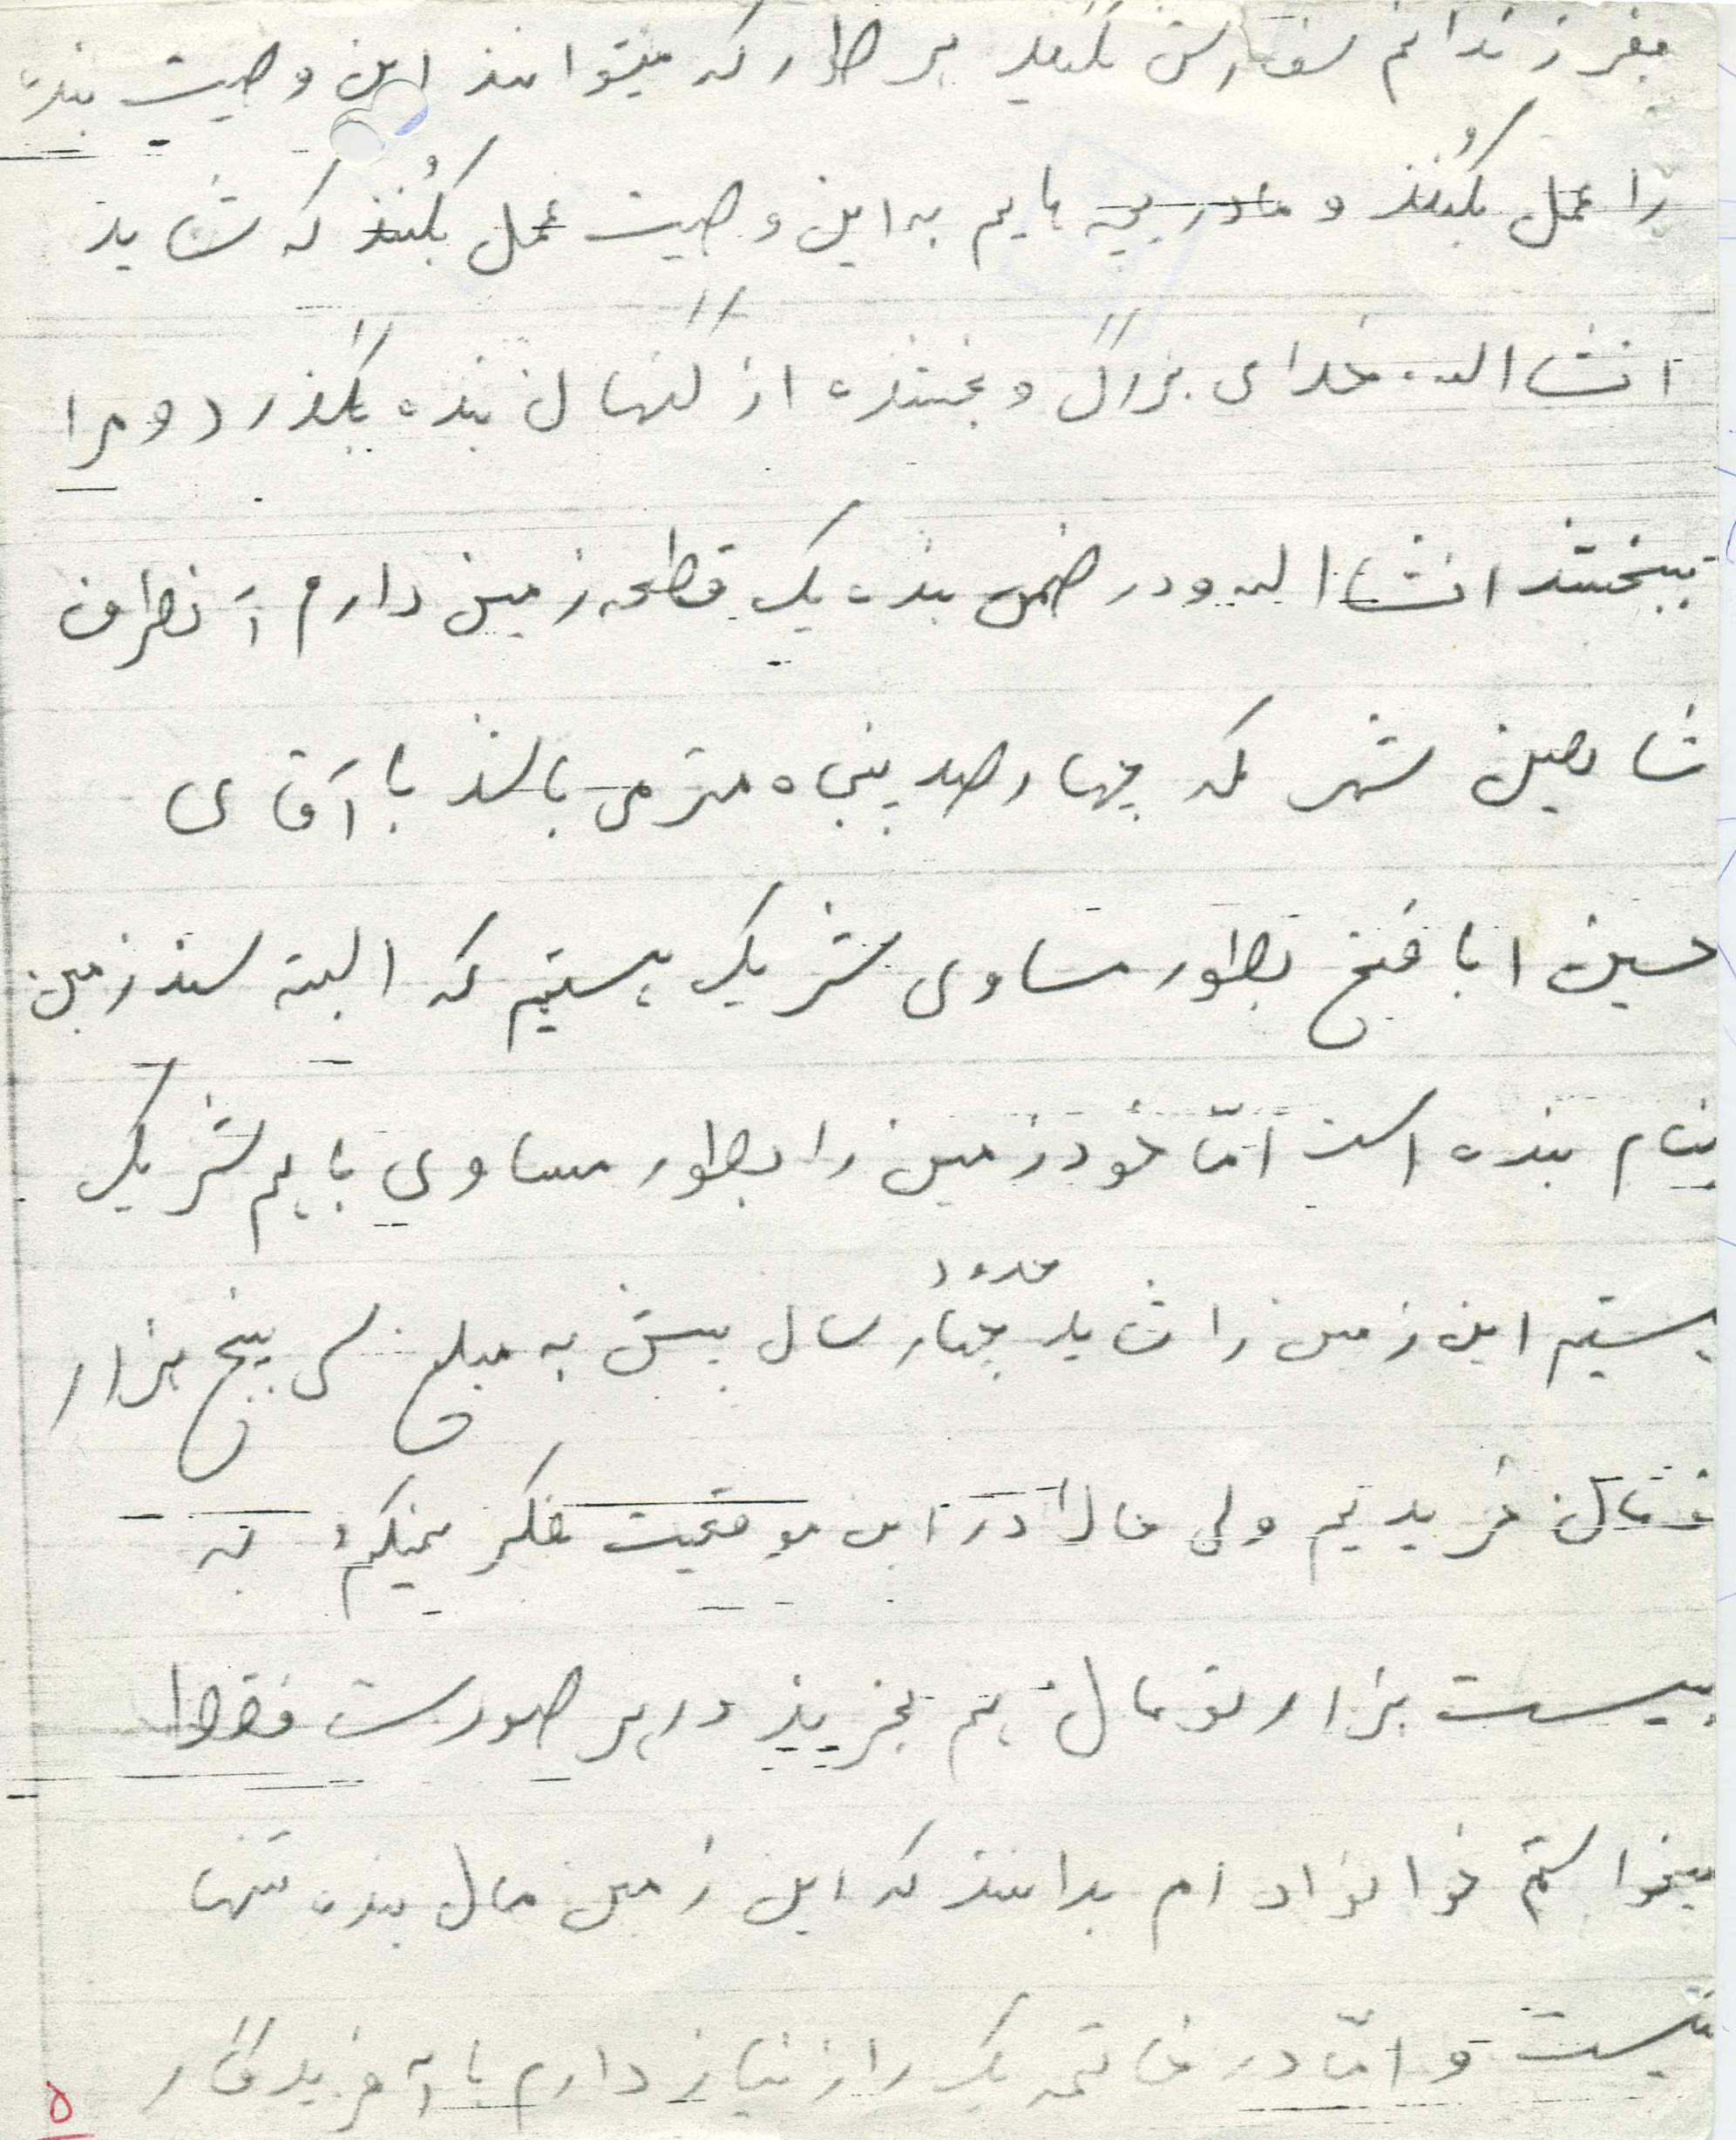 بفرزندانم سفارش بکنید هر طور که میتوانند این وصیت بنده
را عمل بکنند و مادر بچه هایم به این وصیت عمل بکنند که شاید
انشااله خدای بزرگ و بخشنده از گنهان بنده بگذرد و مرا
ببخشد انشااله و در ضمن بنده یک قطعه زمین دارم آنطرف
شاهین شهر که چهارصد پنجاه متر می باشد با آقای
حسین ابا فتح بطور مساوی شریک هستیم که البته سند زمین
بنام بنده است امّا خود زمین را بطور مساوی با هم شریک
هستیم این زمین را شاید حدود چهار سال پیش به مبلغ سی پنج هزار
تومان خریدیم ولی حالا در این موقعیت فکر نمیکنم به
بیست هزار تومان هم بخرید در هر صورت فقط
میخواستم خوانواده ام بدانند که این زمین مال بنده تنها
نیست و امّا در خاتمه یک راز نیاز دارم با آفریدگار
۵